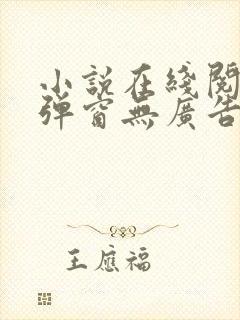 小說在綫閱
彈窗無廣告
王應福